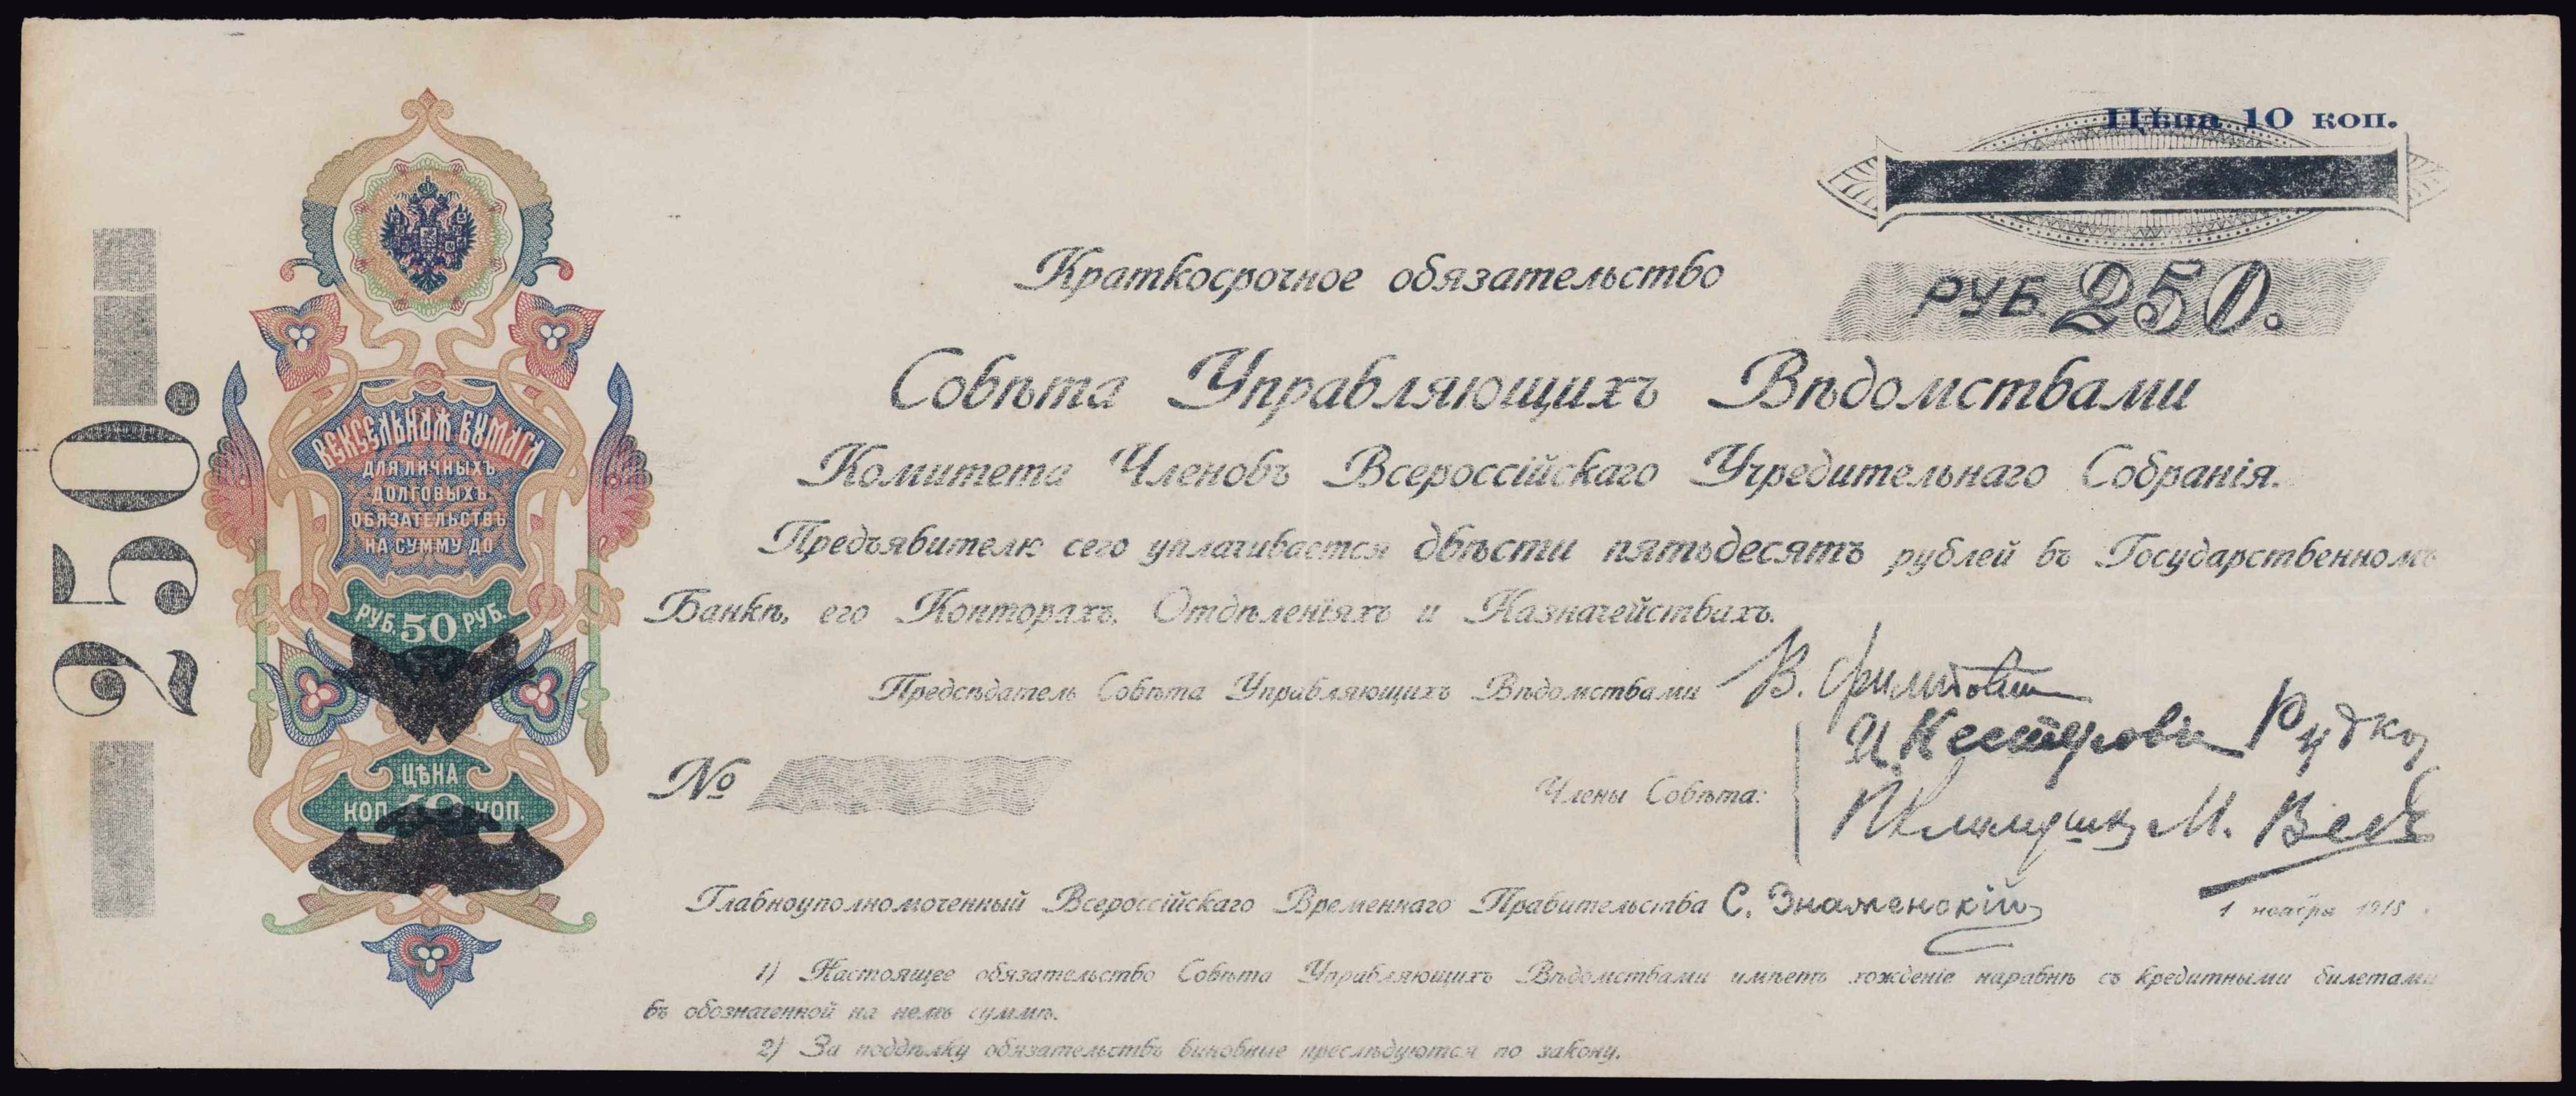 250.
ВЕКСЕЛЬНАЯ БУМАГА
ДЛЯ ЛИЧНЫХЪ
ДОЛГОВЫХЪ
ОБЯЗАТЕЛЬСТВЪ
НА СУММУ ДО
РУБ. 50 РУБ.
ЦѢНА
КОП. 10 КОП.
Цѣна 10 коп.
РУБ. 250.
Краткосрочное обязательство
Совѣта Управляющихъ Вѣдомствами
Комитета Членовъ Всероссійскаго Учредительнаго Собранія.
Предъявителю сего уплачивается двѣсти пятьдесятъ рублей въ Государственномъ
Банкѣ, его Конторахъ, Отдѣленіяхъ и Казначействахъ.
Предсѣдатель Совѣта Управляющихъ Вѣдомствами В. Филипповскій
И. Нестеровъ Рудко
№
Члены Совѣта:
П. Климушкинъ М. Веденяпинъ
Главноуполномоченный Всероссійскаго Временнаго Правительства С. Знаменскій
1 ноября 1918 г.
1) Настоящее обязательство Совѣта Управляющихъ Вѣдомствами имѣетъ хожденіе наравнѣ съ кредитными билетами
въ обозначенной на немъ суммѣ.
2) За поддѣлку обязательствъ виновные преслѣдуются по закону.